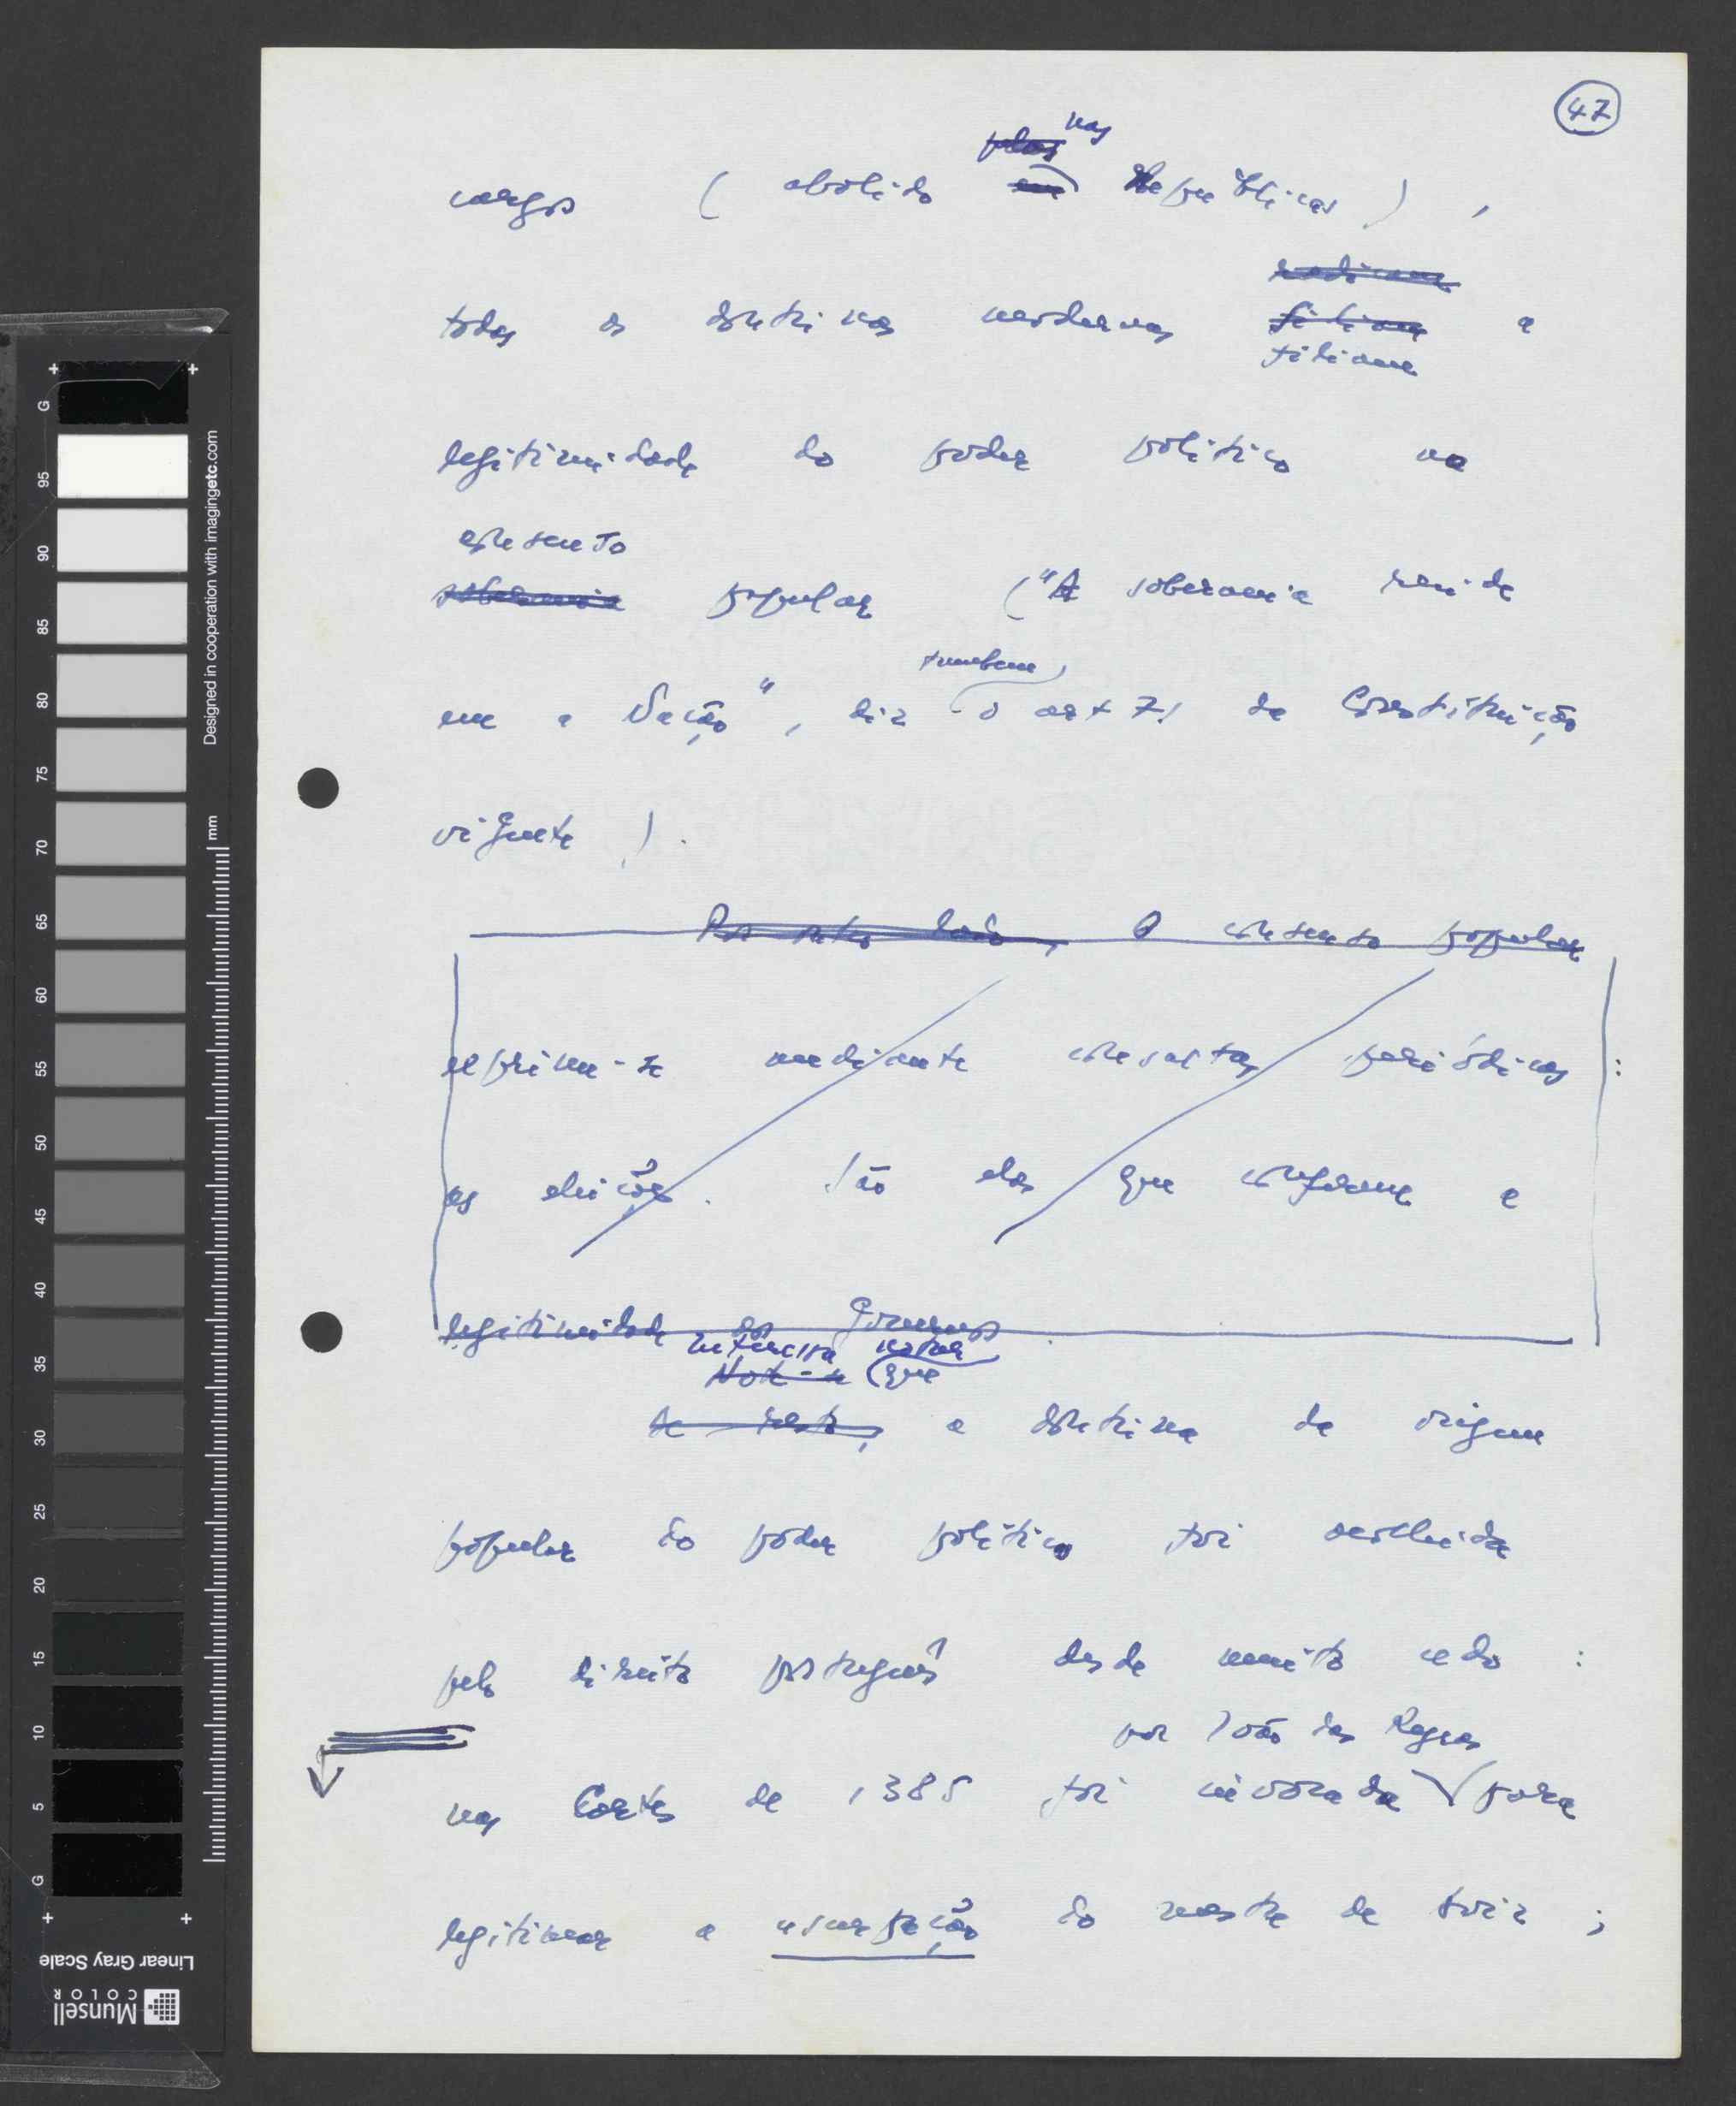 47
pelas nas
cargos ( abolido em Repúblicas ) ,
radicam
todas as doutrinas modernas filiam a
filiam
legitimidade do poder político no
consenso
soberania popular ("A soberania reside
também
em a Nação", diz o art 71 da Constituição
vigente ).
Por outro lado, O consenso popular
exprime-se mediante consultas periódicas :
as eleições. São elas que conferem a
legitimidade aos Governos.
interessa notar
Note-se que
De resto, a doutrina da origem
popular do poder político foi acolhida
pelo direito português desde muito cedo :
por João das Regras
nas Cortes de 1385 foi invocada para
legitimar a usurpação do mestre de Aviz ;
G 95 90 85 80 75 70 65 60 55 50 45 40 35 30 25 20 15 10 5 G
Designed in cooperation with imagingetc.com
mm
Linear Gray Scale
Munsell
COLOR